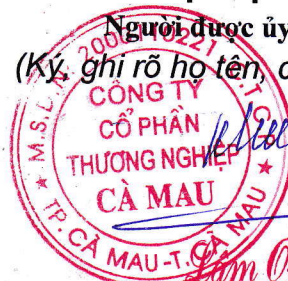 Người được ủy
(Ký, ghi rõ họ tên,
M.S.
CÔNG TY
CỔ PHẦN
THƯƠNG NGHIỆP
CÀ MAU
TP. CÀ MAU - T. CÀ MAU